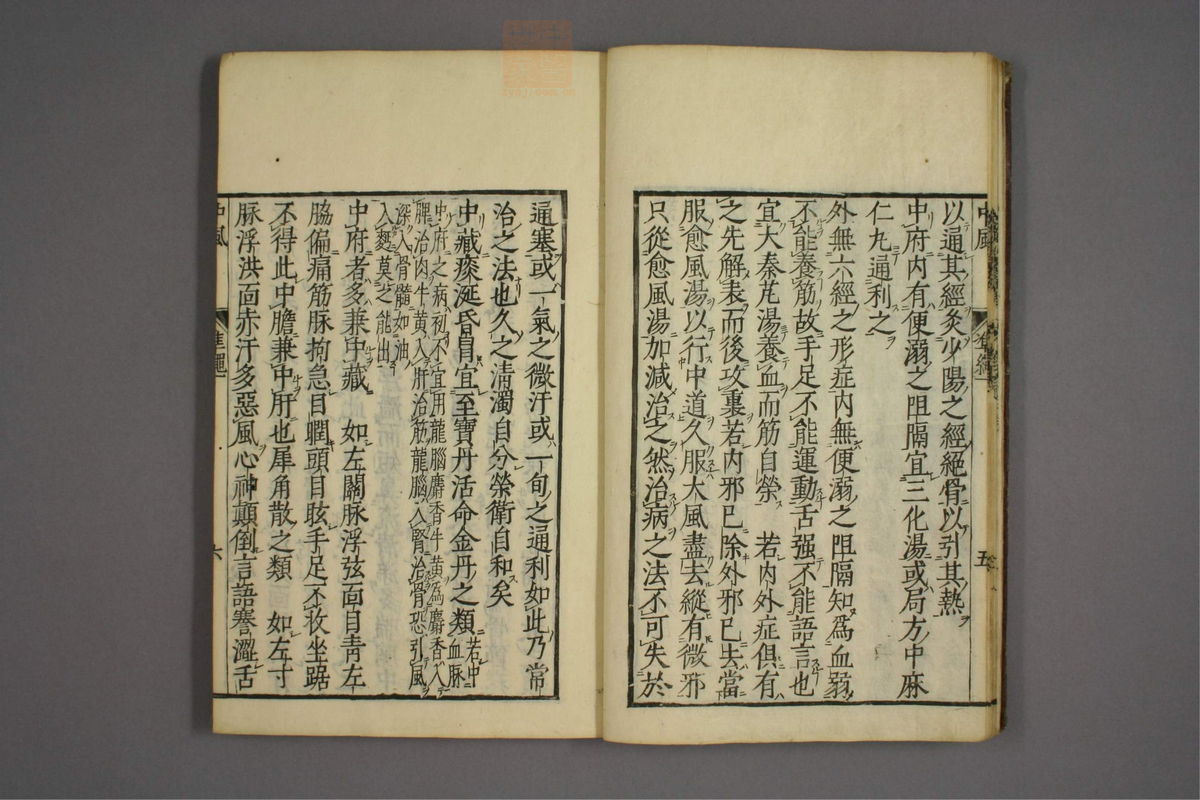 以通其經灸少陽之經絕骨以引其熱
中府内有便溺之阻隔宜三化湯或局方中麻
仁丸通利之
外無六經之形症内無便溺之阻隔知爲血弱
不能養筋故手足不能運動舌强不能語言也
宜大秦艽湯養血而筋自榮　若内外症俱有
之先解表而後攻裏若内邪已除外邪已去當
服愈風湯以行中道久服大風盡去縱有微邪
只從愈風湯加減治之然治病之法不可失於
通塞或一氣之微汗或一旬之通利如此乃常
治之法也久之清濁自分榮衛自和矣
中藏痰涎昏冒宜至寶丹活命金丹之類若中血脉
中府之病初不宜用龍腦麝香牛黄爲麝香入
脾治肉牛黄入肝治筋龍腦入腎治骨恐引風
深入骨髓如油
入麪莫之能出
中府者多兼中藏　如左關脉浮弦面目青左
脇偏痛筋脉拘急目瞤頭目眩手足不收坐踞
不得此中膽兼中肝也犀角散之類　如左寸
脉浮洪面赤汗多惡風心神顛倒言語蹇澀舌
中風
準繩
六
中風
五